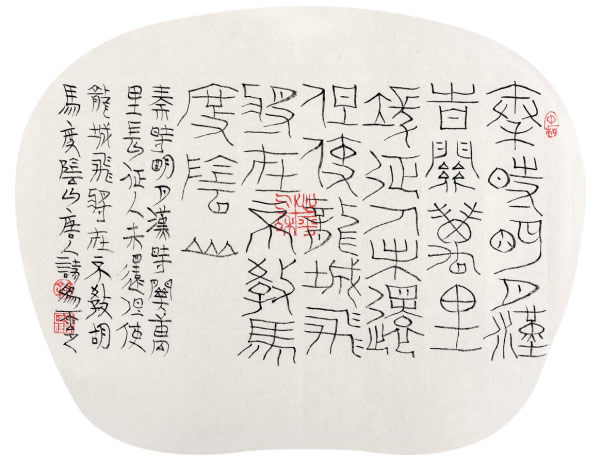 秦時明月漢
旹關萬里
長征人未還
但使龍城飛
將在不教馬
度陰山
秦時明月漢時關萬
里長征人未還但使
龍城飛將在不教胡
馬度陰山唐人詩